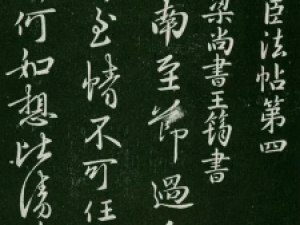 臣法帖第四
梁尚書王筠書
南至節過
至情不可任
何如想比清